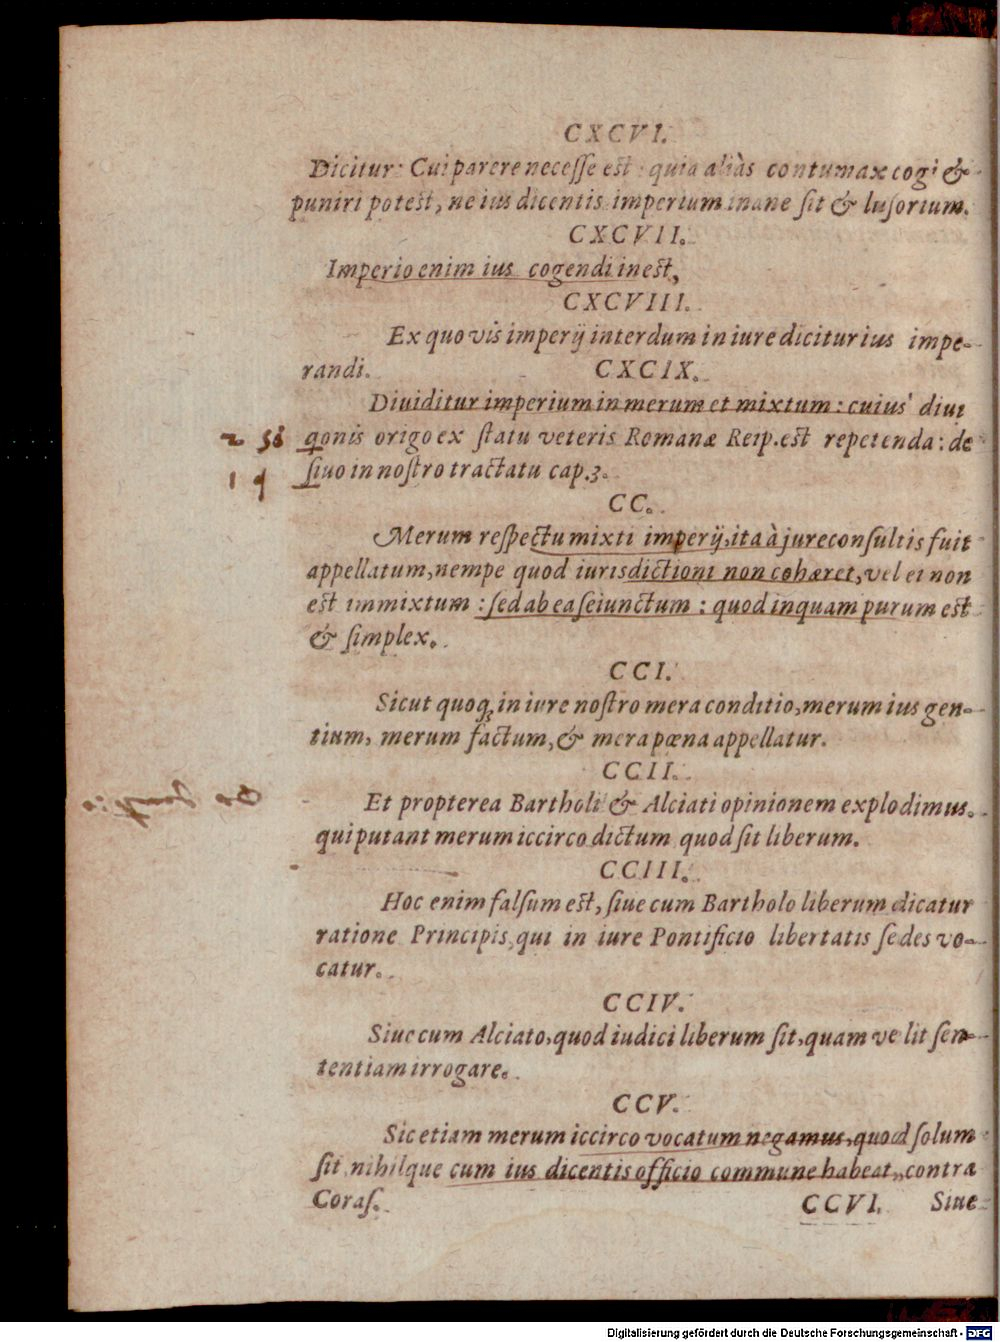 CXCVI.
Dicitur: Cui parere necesse est: quia aliàs contumax cogi &
puniri potest, ne ius dicentis imperium inane sit & lusorium.
CXCVII.
Imperio enim ius cogendi inest,
CXCVIII.
Ex quo vis imperij interdum in iure dicitur ius impe-
randi. CXCIX.
Diuiditur imperium in merum et mixtum: cuius diui
qonis origo ex statu veteris Romanæ Reip. est repetenda: de
siuo in nostro tractatu cap. 3.
CC.
Merum respectu mixti imperij, ita à jureconsultis fuit
appellatum, nempe quod iurisdictioni non cohæret, vel ei non
est immixtum: sed ab ea seiunctum: quod inquam purum est
& simplex.
CCI.
Sicut quoq; in iure nostro mera conditio, merum ius gen-
tium, merum factum, & mera pœna appellatur.
CCII.
Et propterea Bartholi & Alciati opinionem explodimus.
qui putant merum iccirco dictum quod sit liberum.
CCIII.
Hoc enim falsum est, siue cum Bartholo liberum dicatur
ratione Principis, qui in iure Pontificio libertatis sedes vo-
catur.
CCIV.
Siue cum Alciato, quod iudici liberum sit, quam velit sen-
tentiam irrogare.
CCV.
Sic etiam merum iccirco vocatum negamus, quod solum
sit, nihilque cum ius dicentis officio commune habeat, contra
Coras.
CCVI. Siue
Digitalisierung gefördert durch die Deutsche Forschungsgemeinschaft - DFG